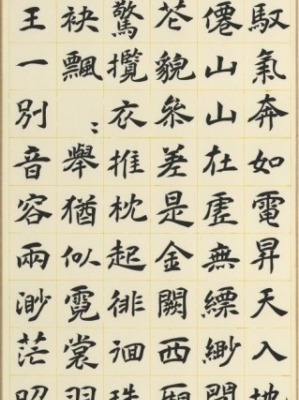 馭氣奔如電昇天入地
僊山山在虛無縹緲閒
花貌參差是金闕西廂
驚攬衣推枕起徘徊珠
袂飄〻舉猶似霓裳羽
王一別音容兩渺茫昭